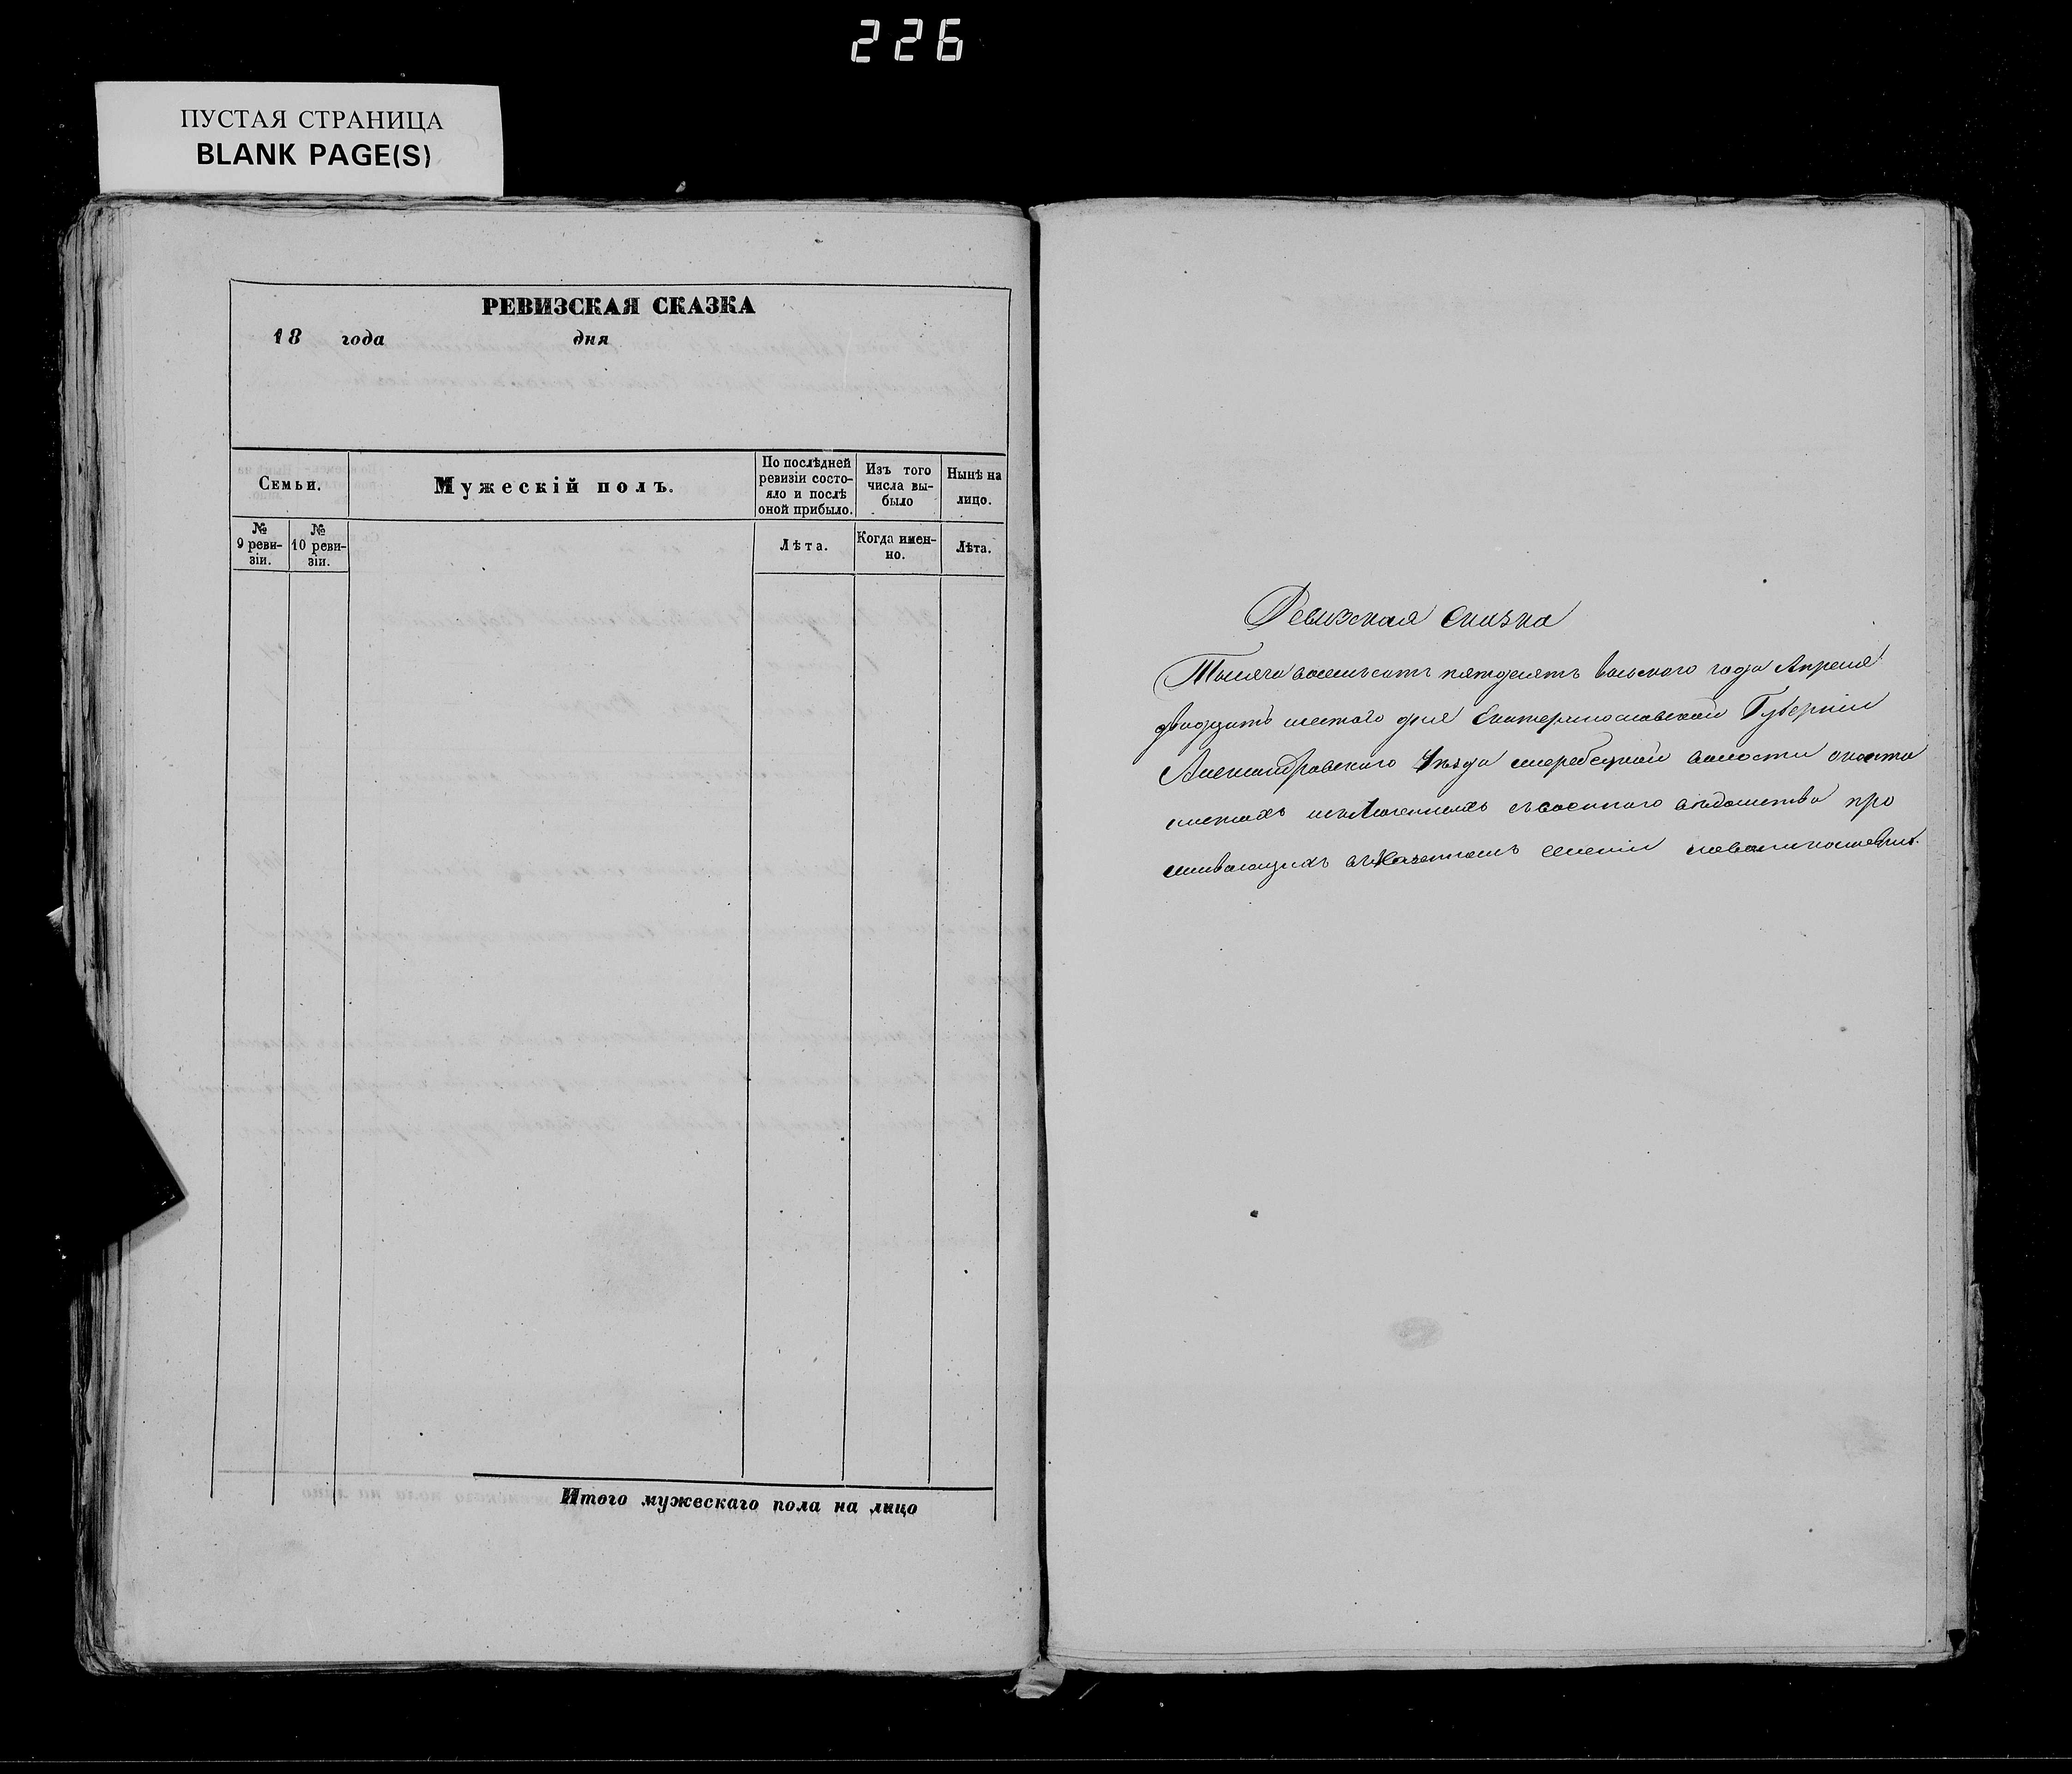 226
ПУСТАЯ СТРАНИЦА
BLANK PAGE(S)
РЕВИЗСКАЯ СКАЗКА
18 года дня
Семьи.
Мужескій полъ.
По послѣдней
ревизіи состо-
яло и послѣ
оной прибыло.
Изъ того
числа вы-
было
Нынѣ на
лицо.
№
9 реви-
зіи.
№
10 реви-
зіи.
Лѣта.
Когда имен-
но.
Лѣта.
Итого мужескаго пола на лицо
Ревизская Сказка
Тысяча восемьсотъ пятдесятъ восьмого года Апреля
двадцать шестого дня Екатеринославской Губерніи
Александровского Уѣзда жеребецкой волости
исключенныхъ военного вѣдомства про
живающихъ казенномъ селеніи